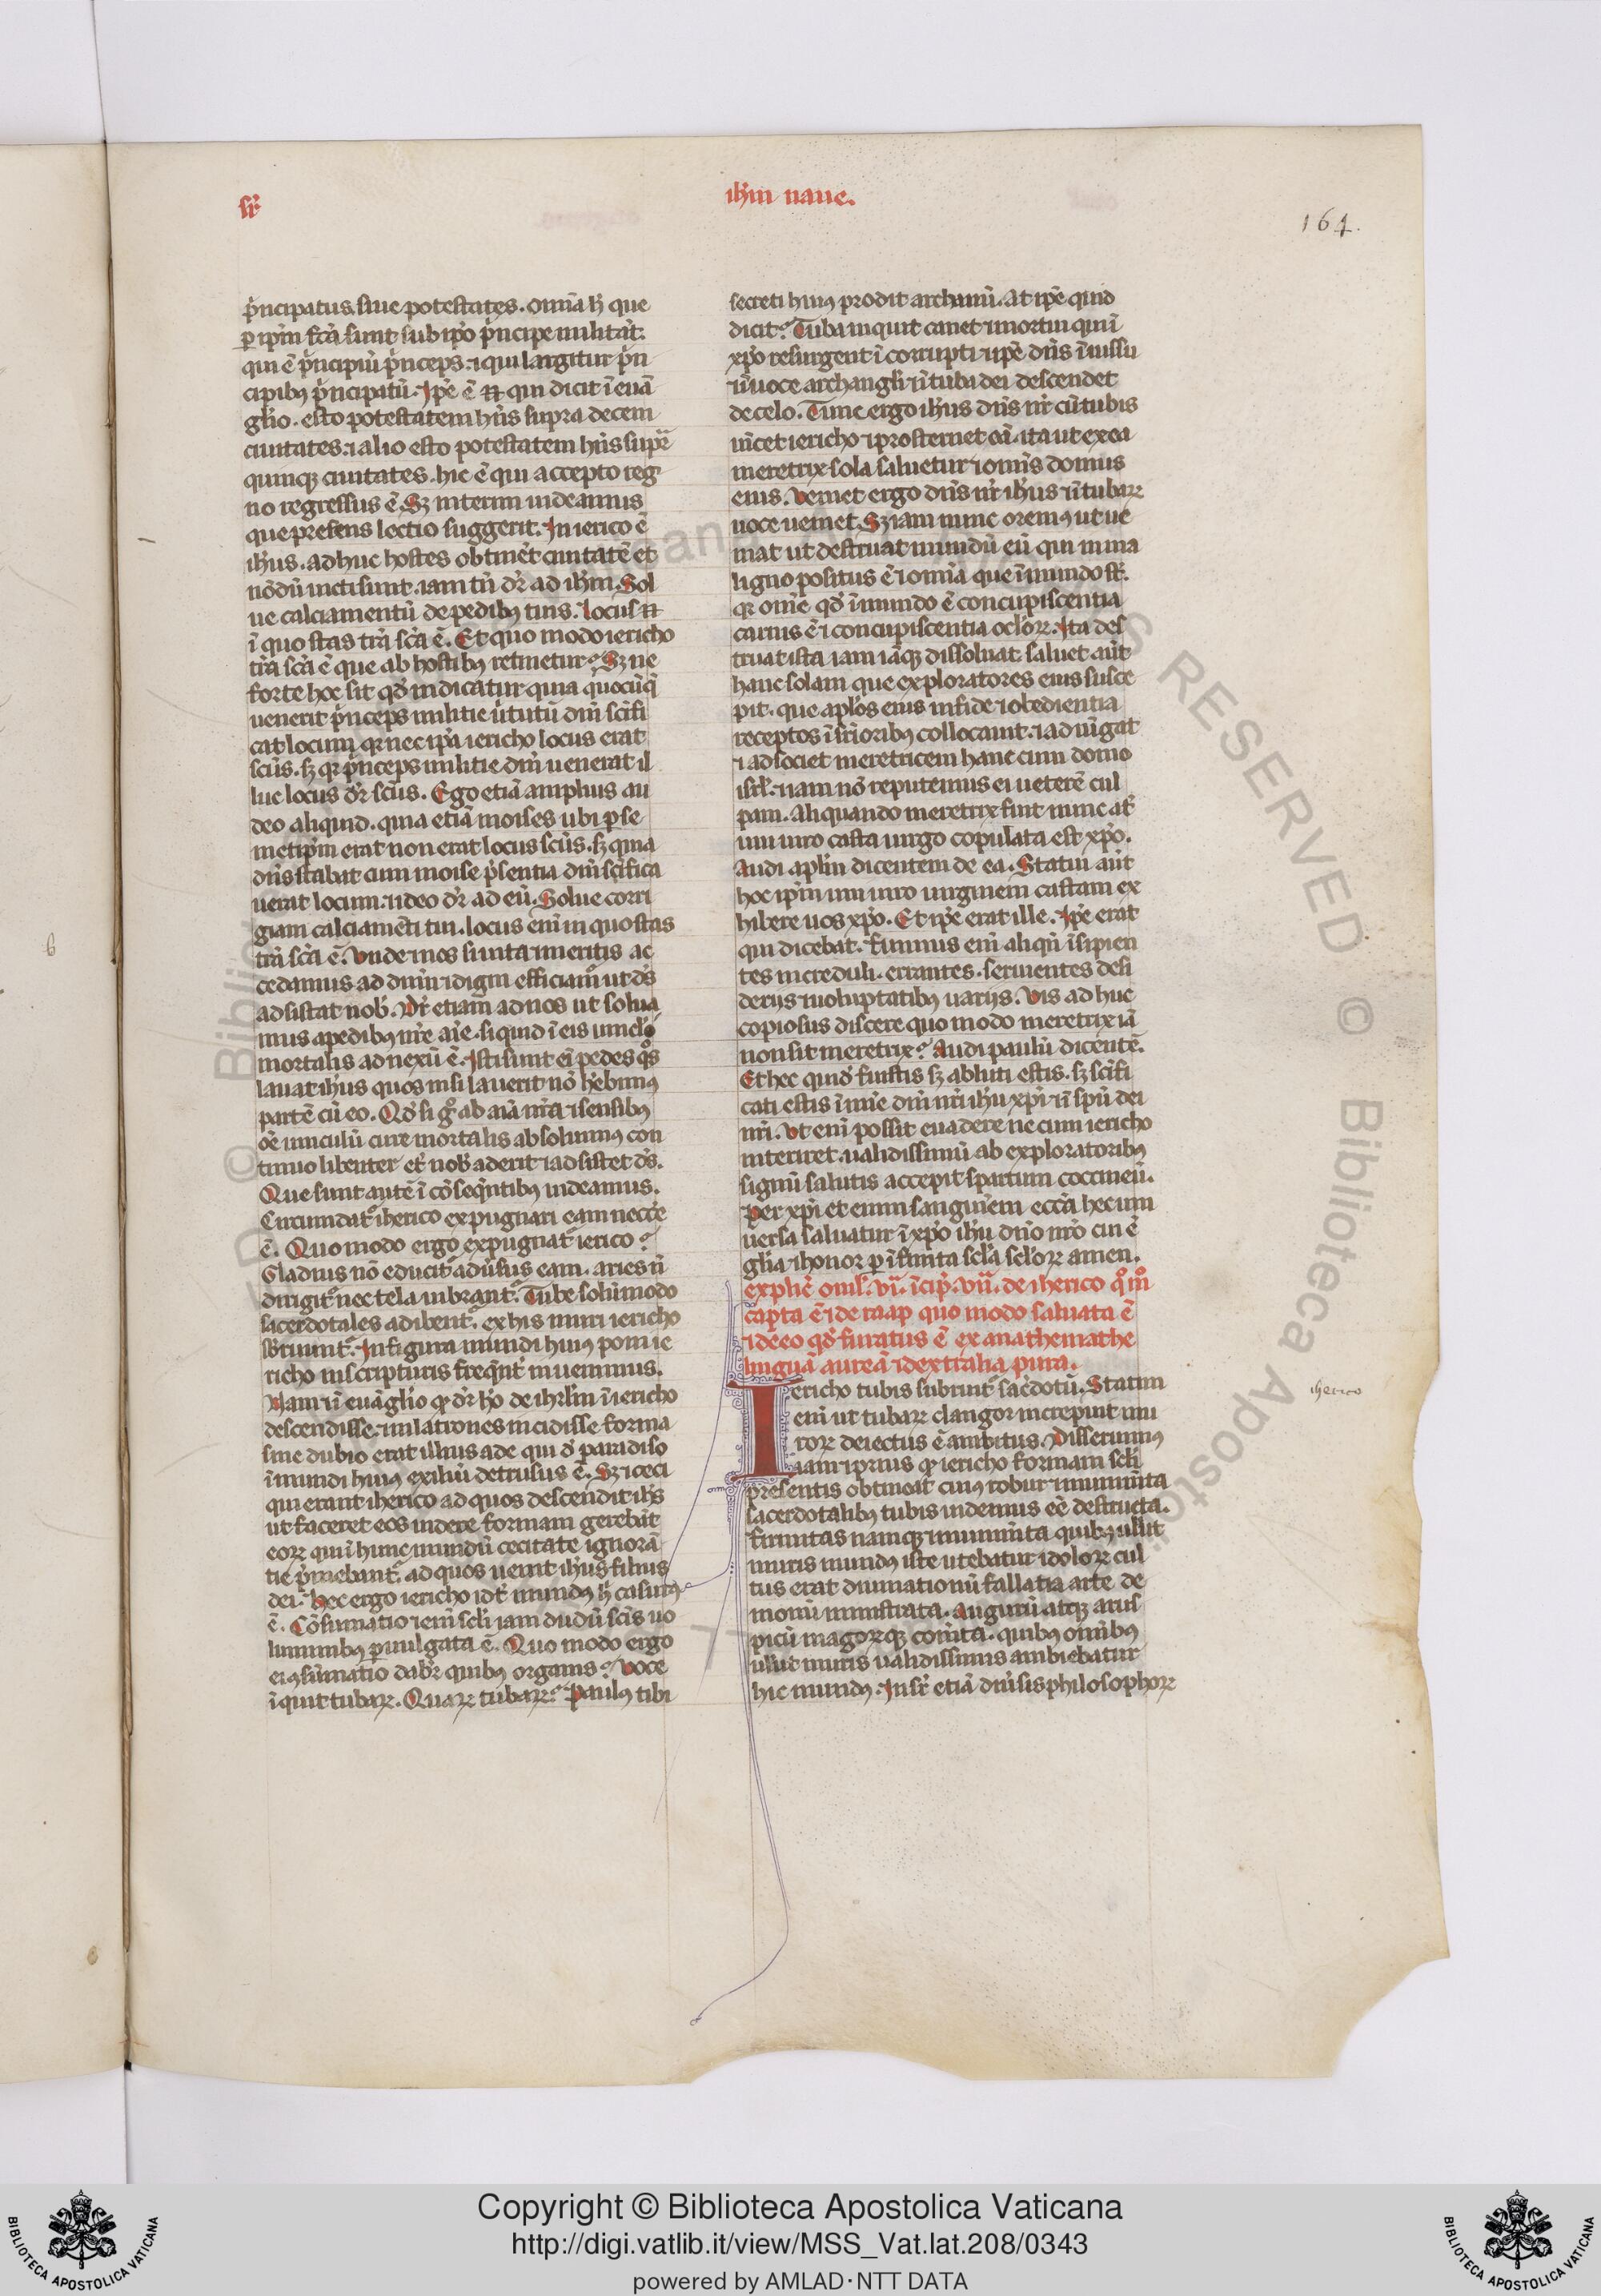 sr̄
ih̄m naue.
164.
p̄ncipatus siue potestates. omīa h̄ que
p ip̄m fc̄a sunt sub ip̄o p̄ncipe militāt.
qui ē p̄ncipiū p̄nceps. ⁊ qui largitur p̄n
cipibꝰ p̄ncipatū. Ip̄e ē .n. qui dicit ī euā
gl̄io. esto potestatem hn̄s supra decem
ciuitates. ⁊ alio esto potestatem hn̄s sup̄
quinqꝫ ciuitates. hic ē qui accepto reg
no regressus ē. Sꝫ interim uideamus
que presens lectio suggerit. In ierico ē
ih̄us. adhuc hostes obtinēt ciuitatē et
nōdū uicti sunt. iam tn̄ dr̄ ad ih̄m. Sol
ue calciamentū de pedibꝰ tuis. Locus .n.
ī quo stas tr̄a sc̄a ē. Et quo modo iericho
tr̄a sc̄a ē que ab hostibꝰ retinetur? Sꝫ ne
forte hoc sit qd̄ indicatur quia quocūqꝫ
uenerit p̄nceps militie ūtutū dn̄i sc̄ifi
cat locum qr nec ip̄a iericho locus erat
sc̄us. sꝫ qr p̄nceps militie dn̄i uenerat il
luc locus dr̄ sc̄us. Ego etiā amplius au
deo aliquid. quia etiā moises ubi p se
metip̄m erat non erat locus sc̄us. sꝫ quia
dn̄s stabat cum moise p̄sentia dn̄i sc̄ifica
uerat locum. ⁊ ideo dr̄ ad eū. Solue corri
giam calciamēti tui. locus eni in quo stas
tr̄a sc̄a ē. Vnde ⁊ nos iuncta ⁊ meritis ac
cedamus ad dn̄m ⁊ digni efficiam̄ ut ds̄
adsistat nob̄. Dr̄ etiam ad nos ut solua
mus a pedibꝰ nr̄e aīe. si quid ī eis uincl̄o
mortalis adnexū ē. Isti sunt eī pedes qōs
lauat ih̄us quos nisi lauerit nō h̄ebimꝰ
partē cū eo. Qd̄ si gͦ ab aīa nr̄a ⁊ sensibꝰ
oē uinculū cure mortalis absoluimꝰ con
tinuo libenter et nob̄ aderit ⁊ adsistet ds̄.
Que sunt autē ī cōseqn̄tibꝰ uideamus.
Circumdat̄ iherico expugnari eam necc̄e
ē. Quo modo ergo expugnat̄ ierico?
Gladius nō educit̄ adūsus eam. aries n̄
dirigit̄ nec tela uibrant̄. Tube solūmodo
sacerdotales adibent̄. ex his muri iericho
sb̄ruunt̄. In figura mundi huiꝰ poni ie
richo in scripturis freqn̄t̄ inuenimus.
Nam ⁊ ī euāgl̄io qꝫ dr̄ ho de ihrl̄m ī iericho
descendisse. ⁊ in latrones incidisse forma
sine dubio erat illius ade qui d̄ paradiso
ī mundi huiꝰ exiliū detrusus ē. Sꝫ ⁊ ceci
qui erant iherico ad quos descendit ih̄s
ut faceret eos uidere formam gerebāt
eorꝝ qui ī hunc mundū cecitate ignorā
tie p̄mebant̄. ad quos uenit ih̄us filius
dei. Hec ergo iericho idt̄ mundꝰ h̄ casurꝰ
ē. Cōsumatio ⁊ enī scl̄i iam dudū sc̄is uo
luminibꝰ puulgata ē. Quo modo ergo
ei ꝯsūmatio dabit̄ quibꝰ organis? Voce
īquit tubarꝝ. Quarꝝ tubarꝝ? Paulꝰ tibi
secreti huiꝰ prodit archanū. At ip̄e quid
dicit? Tuba inquit canet ⁊ mortui qui ī
xp̄o resurgent ī corrupti ⁊ ip̄e dn̄s ī iussu
⁊ ī uoce archangl̄i ⁊ ī tuba dei descendet
de celo. Tunc ergo ih̄us dn̄s nr̄ cū tubis
uincet iericho ⁊ prosternet eā. ita ut ex ea
meretrix sola saluetur ⁊ omīs domus
eius. Veniet ergo dn̄s nr̄ ih̄us ⁊ ī tubarꝝ
uoce ueniet. Sꝫ iam nunc oremꝰ ut ue
niat ut destruat mundū eū qui in ma
ligno positus ē ⁊ omīa que ī mundo st̄.
qr om̄e qd̄ ī mundo ē concupiscentia
carnis ē ⁊ concupiscentia ocl̄orꝝ. Ita des
truat ista iam iāqꝫ dissoluat. saluet aūt
hanc solam que exploratores eius susce
pit. que aplōs eius in fide ⁊ obedientia
receptos ī supīoribꝰ collocauit. ⁊ adiūgat
⁊ adsociet meretricem hanc cum domo
isrl̄. nam nō reputemus ei ueterē cul
pam. Aliquando meretrix fuit nunc at̄
uni uiro casta uirgo copulata est xp̄o.
Audi apl̄m dicentem de ea. Statui aūt
hoc ip̄m uni uiro uirginem castam ex
hibere uos xp̄o. Et ip̄e erat ille. Ip̄e erat
qui dicebat. fuimus enī aliqn̄ īsipien
tes increduli. errantes. seruientes desi
deriis ⁊ uoluptatibꝰ uariis. Vis adhuc
copiosius discere quo modo meretrix iā
non sit meretrix? Audi paulū dicentē.
Et hec quid̄ fuistis sꝫ abluti estis. sꝫ sc̄ifi
cati estis ī nōie dn̄i nr̄i ih̄u xp̄i ⁊ ī spū dei
nr̄i. Vt enī possit euadere ne cum iericho
interiret. ualidissimū ab exploratoribꝰ
signū salutis accepit spartum coccineū.
Per xp̄i et enim sanguinem ecc̄a hec uni
uersa saluatur ī xp̄o ih̄u dn̄o nr̄o cui ē
gl̄ia ⁊ honor p īfinita scl̄a scl̄orꝝ amen.
explic̄ omīl. vi. īcip̄. vii. de iherico qͦ mͦ
capta ē ⁊ de raap quo modo saluata ē
⁊ de eo qd̄ furatus ē ex anathemathe
linguā aureā ⁊ dextralia pura.
Iericho tubis subruit̄ sac̄dotū. Statim
enī ut tubarꝝ clangor increpuit mu
rorꝝ deiectus ē ambitus. Disseruimꝰ
iam ⁊ prius qꝫ iericho formam scl̄i
presentis obtineat cuiꝰ robur ⁊ munim̄ta
sacerdotalibꝰ tubis uidemus eē destructa.
firmitas namqꝫ ⁊ munim̄ta quibꝰ uelut
muris mundꝰ iste utebatur idolorꝝ cul
tus erat diuinationū fallatia arte de
monū ministrata. Auguriū atqꝫ arus
picū magorꝝqꝫ com̄ta. quibꝰ omībꝰ
uelut muris ualidissimis ambiebatur
hic mundꝰ. Insup̄ etiā diūsis philosophorꝝ
iherico
Copyright © Biblioteca Apostolica Vaticana
http://digi.vatlib.it/view/MSS_Vat.lat.208/0343
powered by AMLAD·NTT DATA
BIBLIOTECA APOSTOLICA VATICANA
BIBLIOTECA APOSTOLICA VATICANA